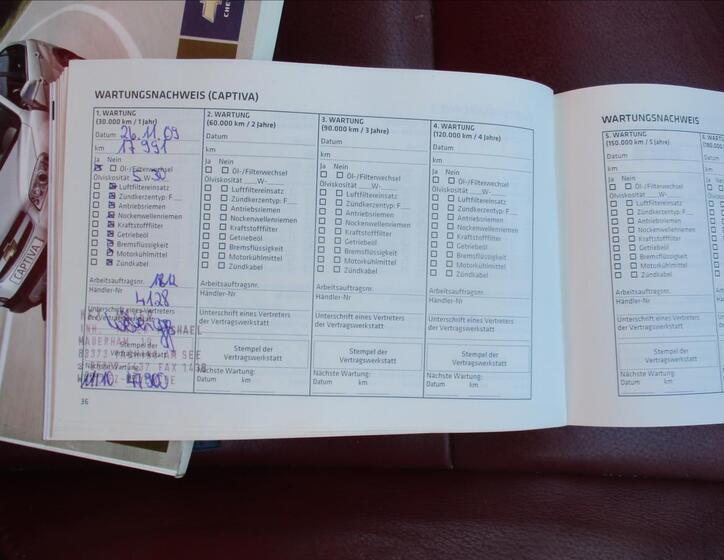 CHE
CAPTIVA
CAPTIVA
WARTUNGSNACHWEIS (CAPTIVA)
1. WARTUNG
(30.000 km / 1 Jahr)
Datum 26.11.09
km 17991
Ja Nein
Öl-/Filterwechsel
Ölviskosität 5 W-30
Luftfiltereinsatz
Zündkerzentyp: F
Antriebsriemen
Nockenwellenriemen
Kraftstofffilter
Getriebeöl
Bremsflüssigkeit
Motorkühlmittel
Zündkabel
Arbeitsauftragsnr.
Händler-Nr 4128
Unterschrift eines Vertreters
der Vertragswerkstatt
MAUERHAM
AM SEE
Stempel der
Vertragswerkstatt
FAX
Nächste Wartung:
11/10 47900
2. WARTUNG
(60.000 km / 2 Jahre)
Datum
km
Ja Nein
Öl-/Filterwechsel
Ölviskosität __W-__
Luftfiltereinsatz
Zündkerzentyp: F__
Antriebsriemen
Nockenwellenriemen
Kraftstofffilter
Getriebeöl
Bremsflüssigkeit
Motorkühlmittel
Zündkabel
Arbeitsauftragsnr.
Händler-Nr.
Unterschrift eines Vertreters
der Vertragswerkstatt
Stempel der
Vertragswerkstatt
Nächste Wartung:
Datum km
3. WARTUNG
(90.000 km / 3 Jahre)
Datum
km
Ja Nein
Öl-/Filterwechsel
Ölviskosität __W-__
Luftfiltereinsatz
Zündkerzentyp: F__
Antriebsriemen
Nockenwellenriemen
Kraftstofffilter
Getriebeöl
Bremsflüssigkeit
Motorkühlmittel
Zündkabel
Arbeitsauftragsnr.
Händler-Nr.
Unterschrift eines Vertreters
der Vertragswerkstatt
Stempel der
Vertragswerkstatt
Nächste Wartung:
Datum km
4. WARTUNG
(120.000 km / 4 Jahre)
Datum
km
Ja Nein
Öl-/Filterwechsel
Ölviskosität __W-__
Luftfiltereinsatz
Zündkerzentyp: F__
Antriebsriemen
Nockenwellenriemen
Kraftstofffilter
Getriebeöl
Bremsflüssigkeit
Motorkühlmittel
Zündkabel
Arbeitsauftragsnr.
Händler-Nr.
Unterschrift eines Vertreters
der Vertragswerkstatt
Stempel der
Vertragswerkstatt
Nächste Wartung:
Datum km
36
WARTUNGSNACHWEIS
5. WARTUNG
(150.000 km / 5 Jahre)
Datum
km
Ja Nein
Öl-/Filterwechsel
Ölviskosität __W-__
Luftfiltereinsatz
Zündkerzentyp: F__
Antriebsriemen
Nockenwellenriemen
Kraftstofffilter
Getriebeöl
Bremsflüssigkeit
Motorkühlmittel
Zündkabel
Arbeitsauftragsnr.
Händler-Nr.
Unterschrift eines Vertreters
der Vertragswerkstatt
Stempel der
Vertragswerkstatt
Nächste Wartung:
Datum km